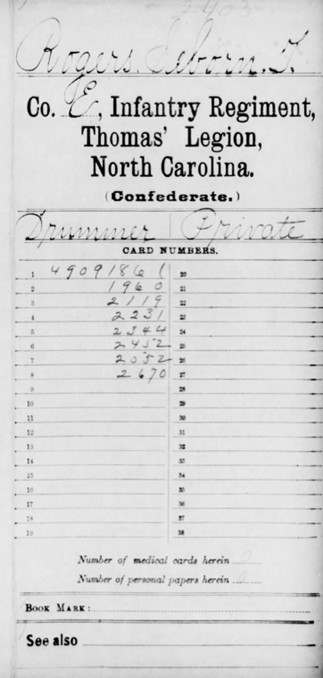 Rogers, Seborn. T.
Co. E, Infantry Regiment,
Thomas' Legion,
North Carolina.
(Confederate.)
Drummer | Private
CARD NUMBERS.
1 49091861 20
2 1960 21
3 2119 22
4 2231 23
5 2344 24
6 2452 25
7 2552 26
8 2670 27
9 28
10 29
11 30
12 31
13 32
14 33
15 34
16 35
17 36
18 37
19 38
Number of medical cards herein
Number of personal papers herein
BOOK MARK:
See also